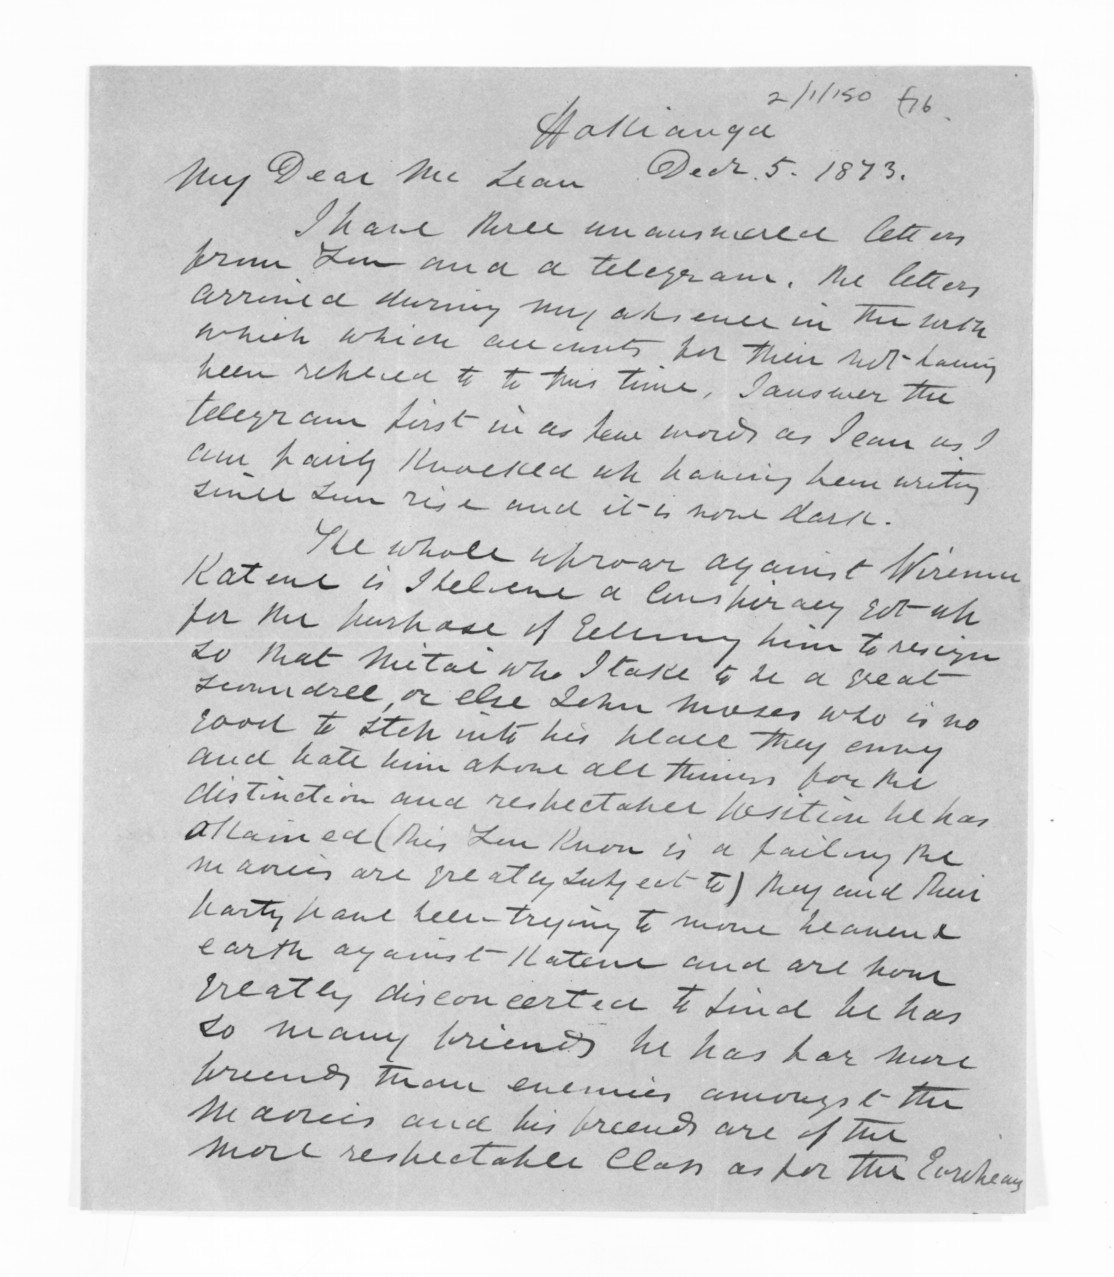 2/1/150 f16.
Hokianga
My Dear Mc Lean Decr. 5. 1873.
I have three unanswered letters
from You and a telegram. the letters
arrived during my absence in the north
which which accounts for their not having
been replied to to this time, I answer the
telegram first in as few words as I can as I
am fairly Knocked up having been writing
since sun rise and it is now dark.
The whole uproar against Wiremu
Katene is I believe a Conspiracy got up
for the purpose of getting him to resign
so that Mitai who I take to be a great
scoundrel, or else John Moses who is no
good to step into his place they envy
and hate him above all things for the
distinction and respectable position he has
attained (this You Know is a failing the
maories are greatly subject to) they and their
party have been trying to move heaven &
earth against Katene and are now
greatly disconcerted to find he has
so many friends he has far more
friends than enemies amongst the
Maories and his friends are of the
more respectable Class as for the Europeans